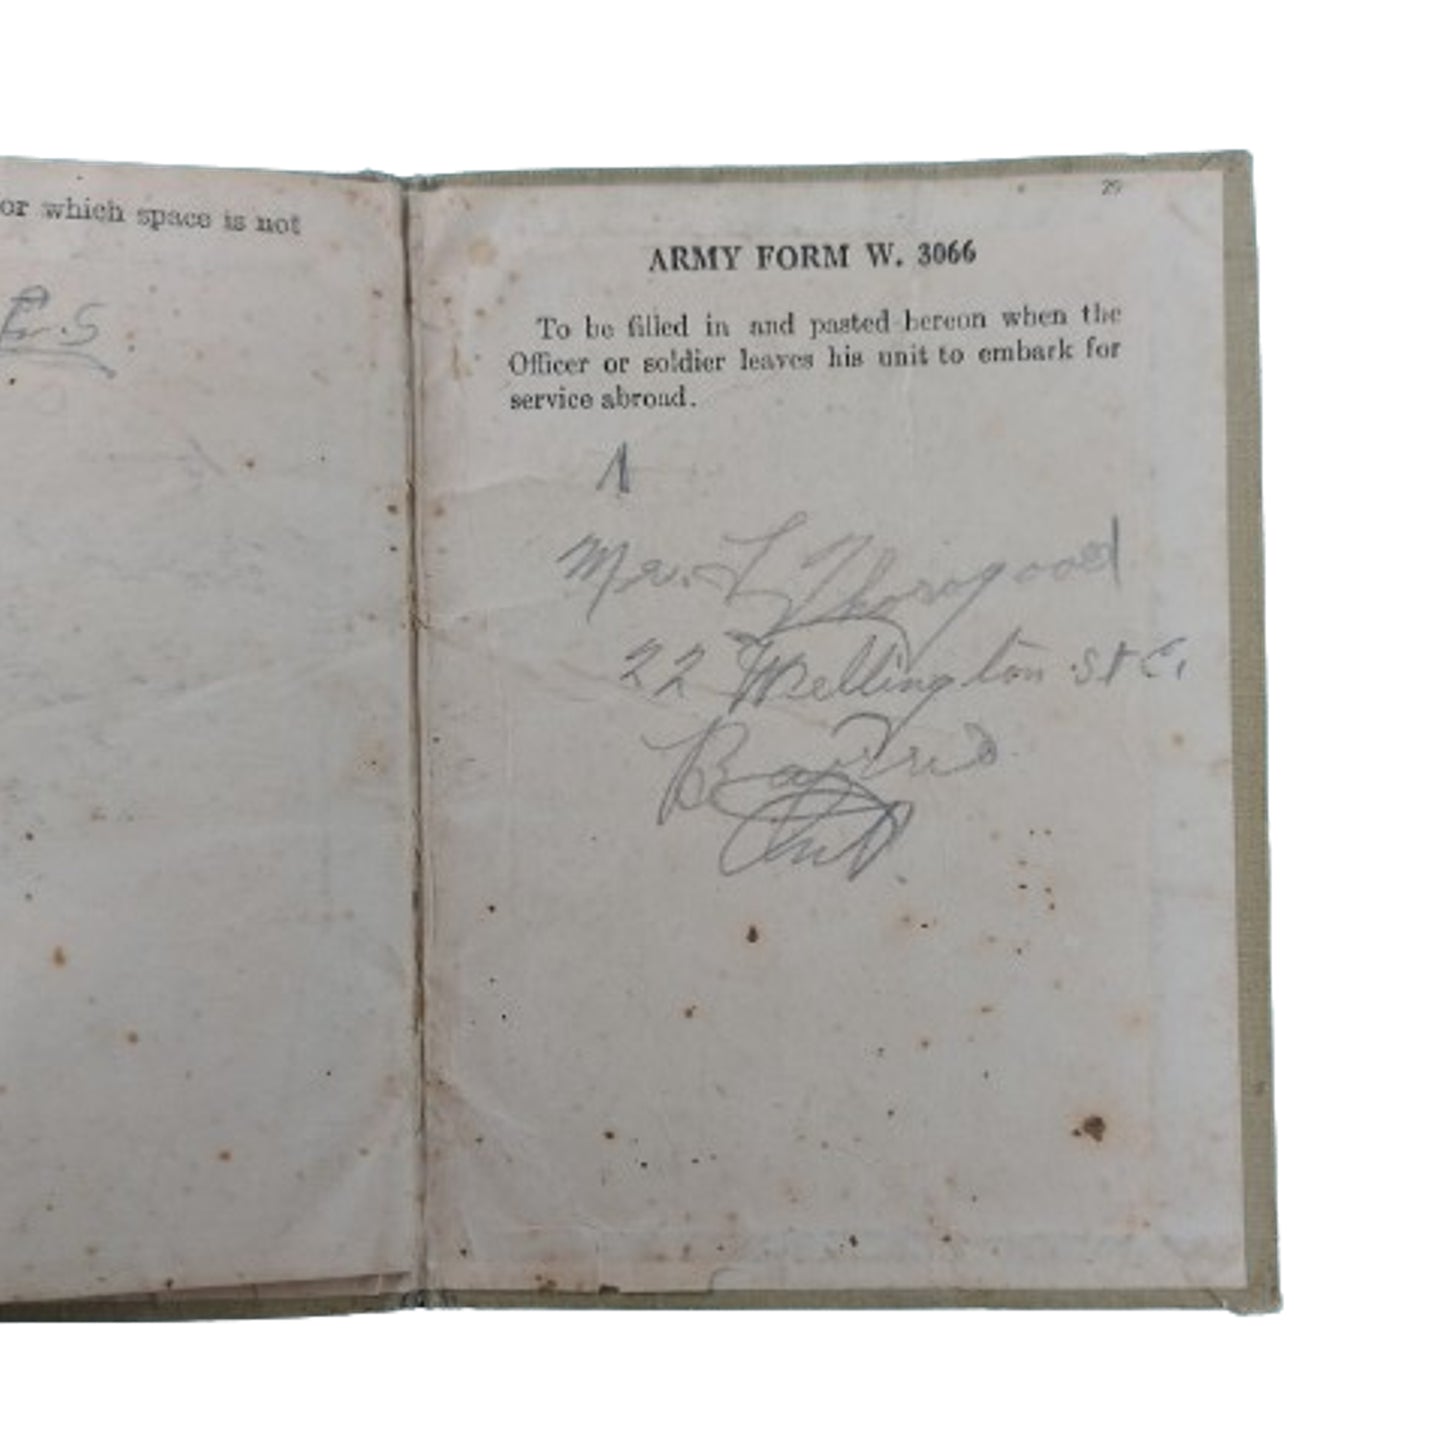 or which space is not
E.S
29
ARMY FORM W. 3066
To be filled in and pasted hereon when the
Officer or soldier leaves his unit to embark for
service abroad.
Mr. L Thorogood
22 Wellington St E.
Ont.